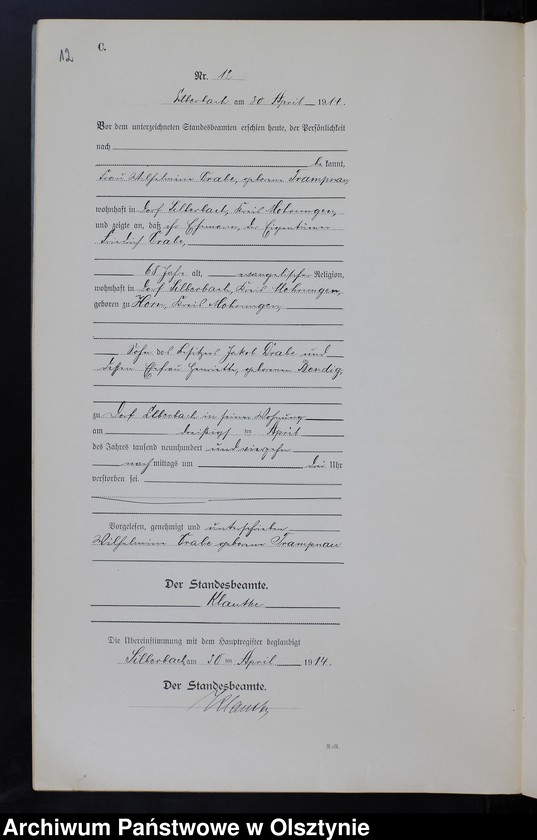 12
C.
Nr. 12
Silberbach am 30 April 1914.
Vor dem unterzeichneten Standesbeamten erschien heute, der Persönlichkeit
nach
bekannt,
Frau Wilhelmine Drabe, geborene Trampnau
wohnhaft in Dorf Silberbach, Kreis Mohrungen,
und zeigte an, daß ihr Ehemann, der Eigentümer
Friedrich Drabe,
65 Jahre alt, evangelischer Religion,
wohnhaft in Dorf Silberbach, Kreis Mohrungen,
geboren zu Horn, Kreis Mohrungen,
Sohn des Besitzers Jakob Drabe und
dessen Ehefrau Henriette, geborenen Bendig
zu Dorf Silberbach in seiner Wohnung
am dreißigsten April
des Jahres tausend neunhundert und vierzehn
nachmittags um drei Uhr
verstorben sei.
Vorgelesen, genehmigt und unterschrieben
Wilhelmine Drabe geborene Trampnau
Der Standesbeamte.
Klautke
Die Übereinstimmung mit dem Hauptregister beglaubigt
Silberbach, am 30 ten April 1914.
Der Standesbeamte.
Klautke
Archiwum Państwowe w Olsztynie